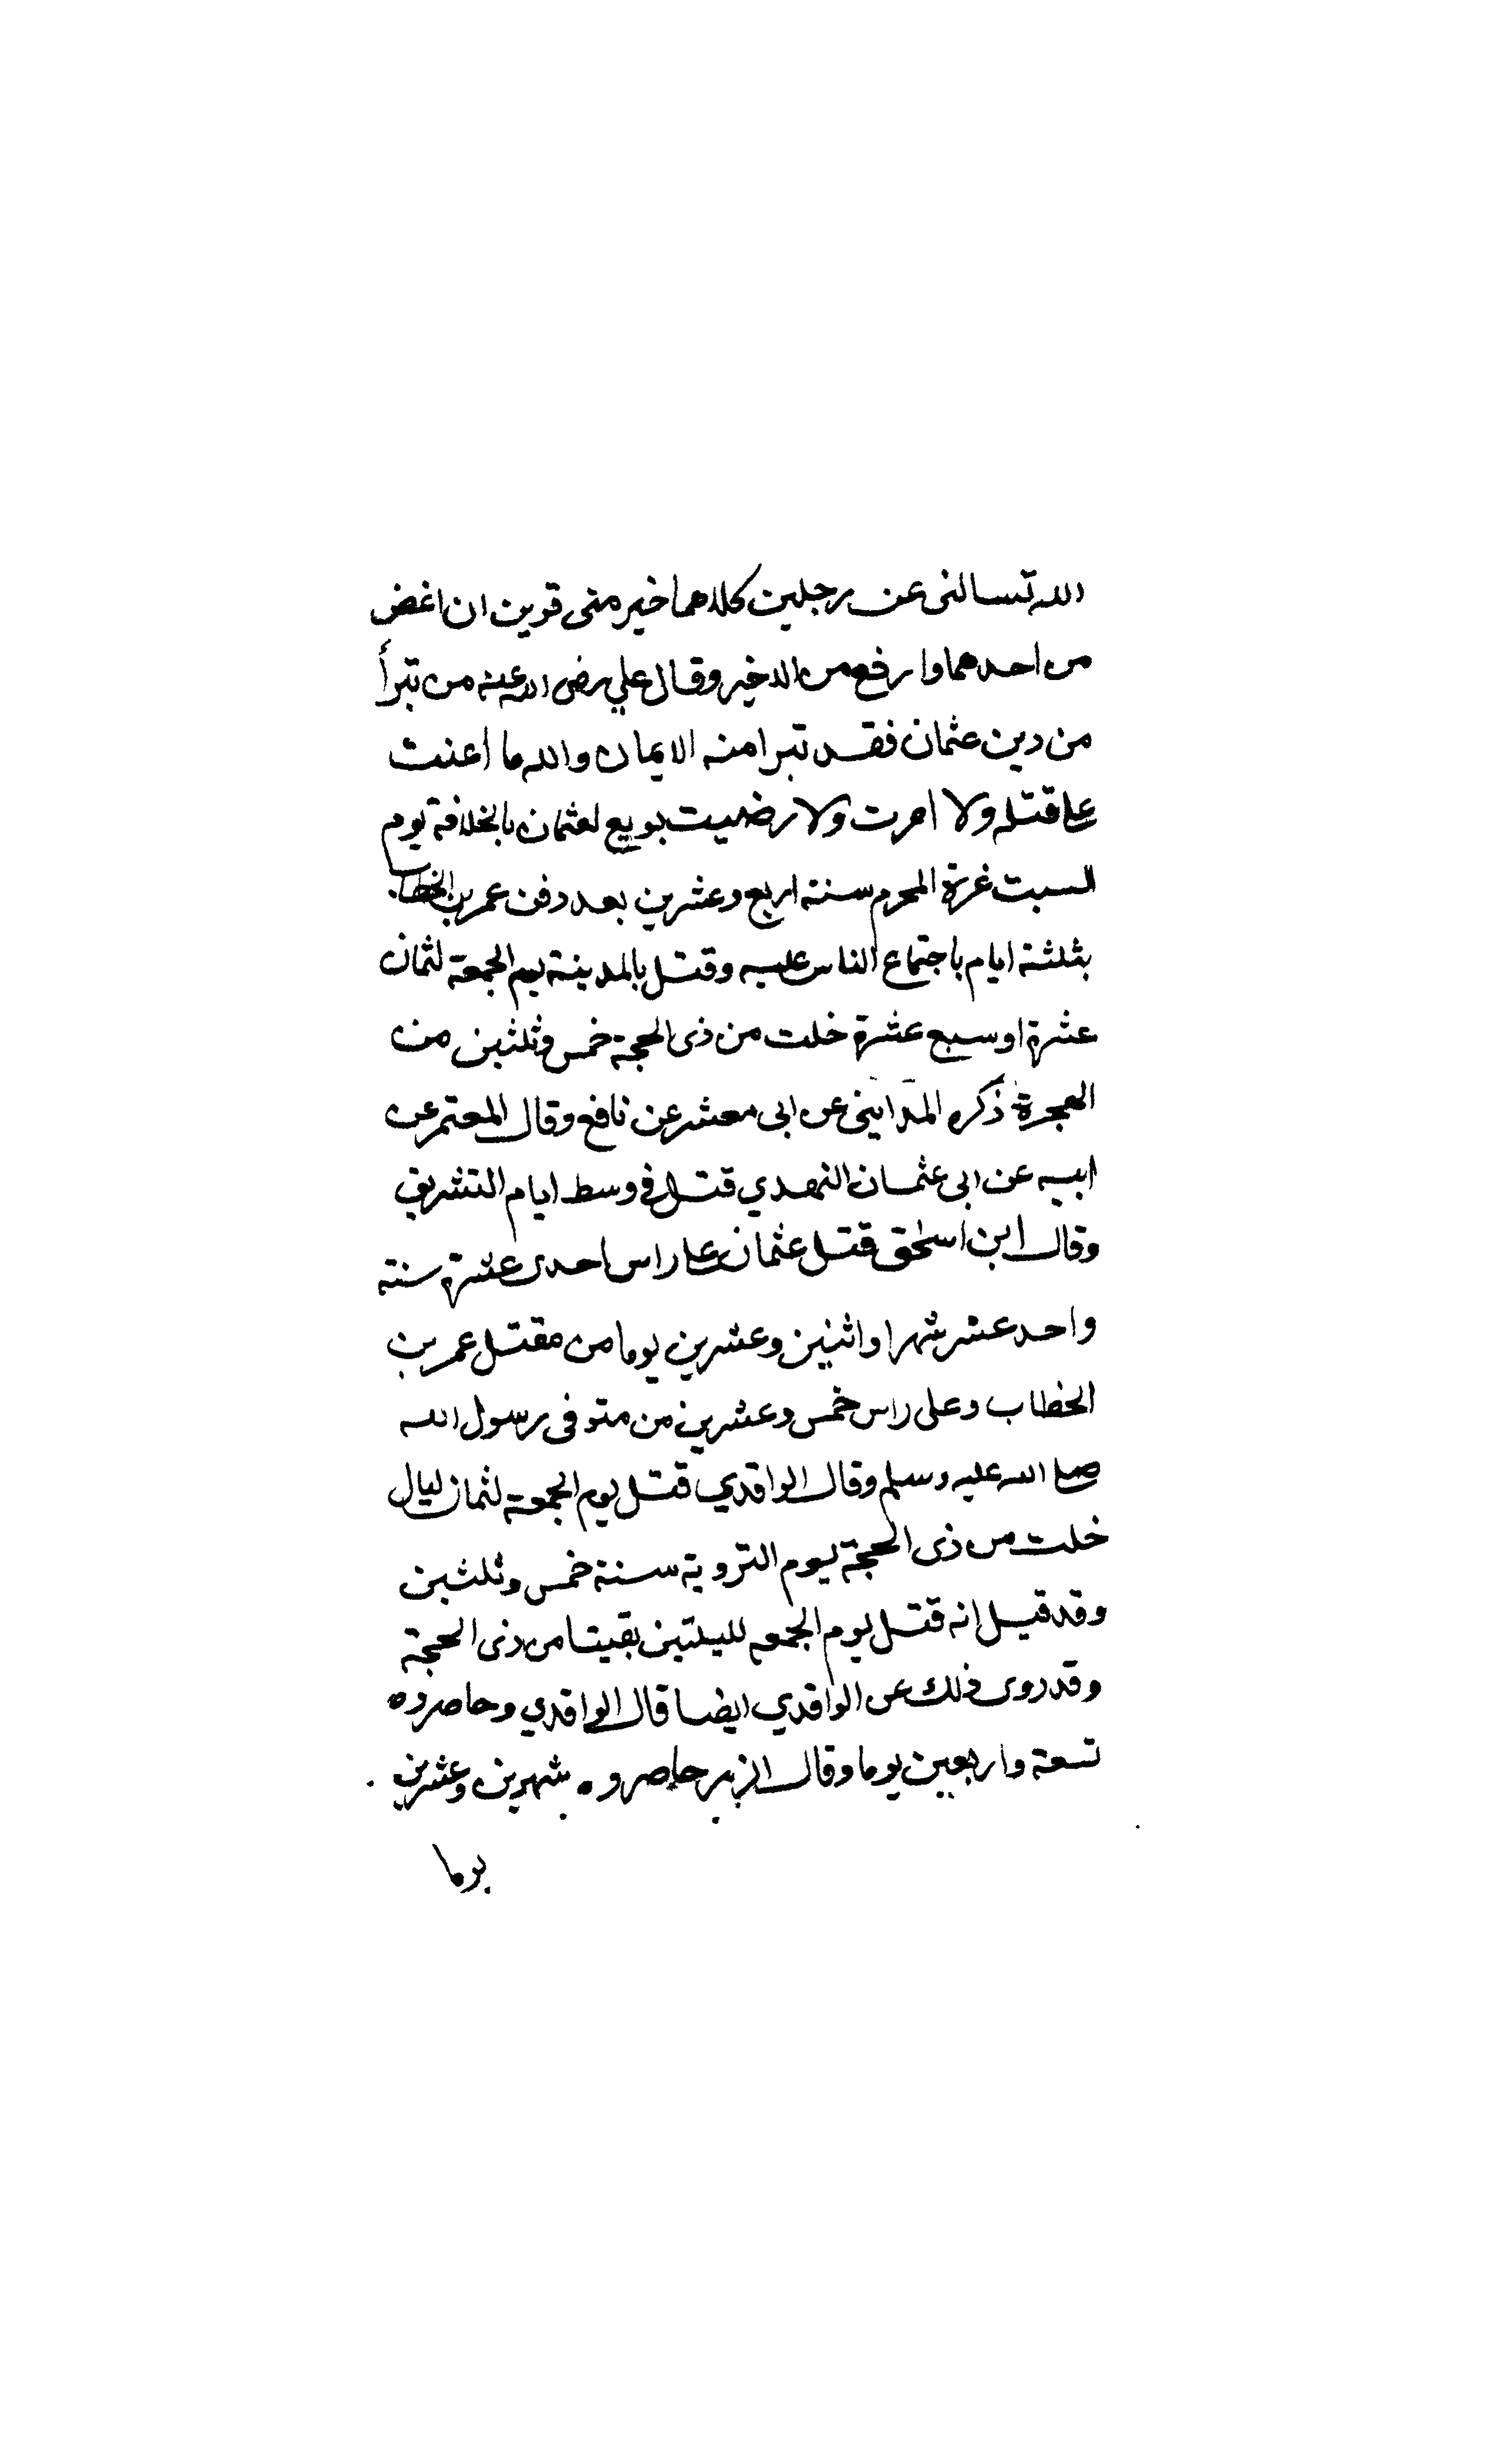 الله تسالنى عن رجلين كلاهما خير منى تريد ان اغض
من احدهما وارفع من الاخير وقال علي رضى الله عنه من تبرأ
من دين عثمان فقد تبرا منه الايمان والله ما أعنت
على قتله ولا امرت ولا رضيت بويع لعثمان بالخلافة يوم
السبت غرة المحرم سنة اربع وعشرين بعد دفن عمر بن الخطاب
بثلثة ايام باجتماع الناس عليه وقتل بالمدينة يوم الجمعة لثمان
عشرة او سبع عشرة خلت من ذى الحجة خمس وثلثين من
الهجرة ذكره المدايني عن ابى معشر عن نافع وقال المعتمر عن
ابيه عن ابى عثمان النهدي قتل في وسط ايام التشريق
وقال ابن اسحق قتل عثمان على راس احدى عشرة سنة
واحد عشر شهرا واثنين وعشرين يوما من مقتل عمر بن
الخطاب وعلى راس خمس وعشرين من متوفى رسول الله
صلى الله عليه وسلم وقال الواقدي قتل يوم الجمعة لثمان ليال
خلت من ذى الحجة يوم التروية سنة خمس وثلثين
وقد قيل انه قتل يوم الجمعه لليلتين بقيتا من ذى الحجة
وقد روى ذلك عن الواقدي ايضا قال الواقدي وحاصروه
تسعة واربعين يوما وقال الزبير حاصروه شهرين وعشرين
يوما